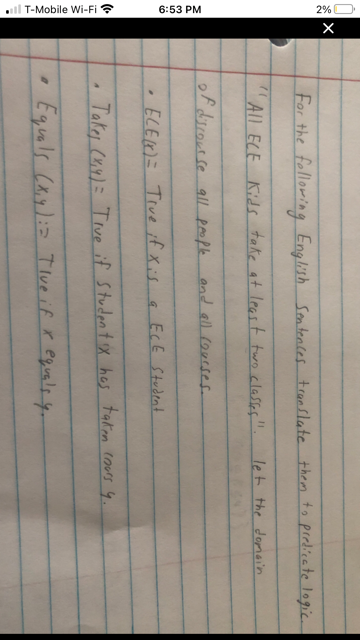 T-Mobile Wi-Fi 6:53 PM 2%
For the following English Sentences translate them to predicate logic
"All ECE Kids take at least two classes". let the domain
of discourse all people and all courses.
• ECE(x)= True if x is a ECE student
• Takes(x,y)= True if student x has taken cours y.
• Equals (x,y):= True if x equals y.